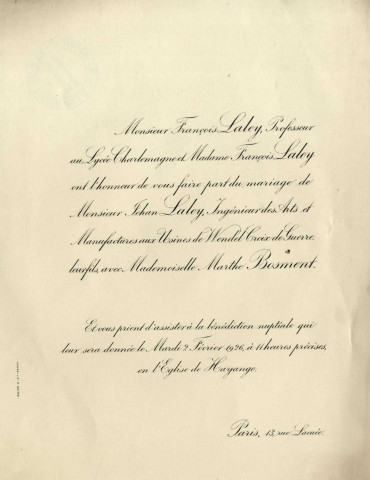 Monsieur François Laley, Professeur
au Lycée Charlemagne et Madame François Laley
ont l'honneur de vous faire part du mariage de
Monsieur Jehan Laley, Ingénieur des Arts et
Manufactures aux Usines de Wendel, Croix de Guerre,
leur fils, avec Mademoiselle Marthe Bosment.
Et vous prient d'assister à la bénédiction nuptiale qui
leur sera donnée le Mardi 2 Février 1926, à 11 heures précises,
en l'Eglise de Hayange.
Paris, 13, rue Lacuée.